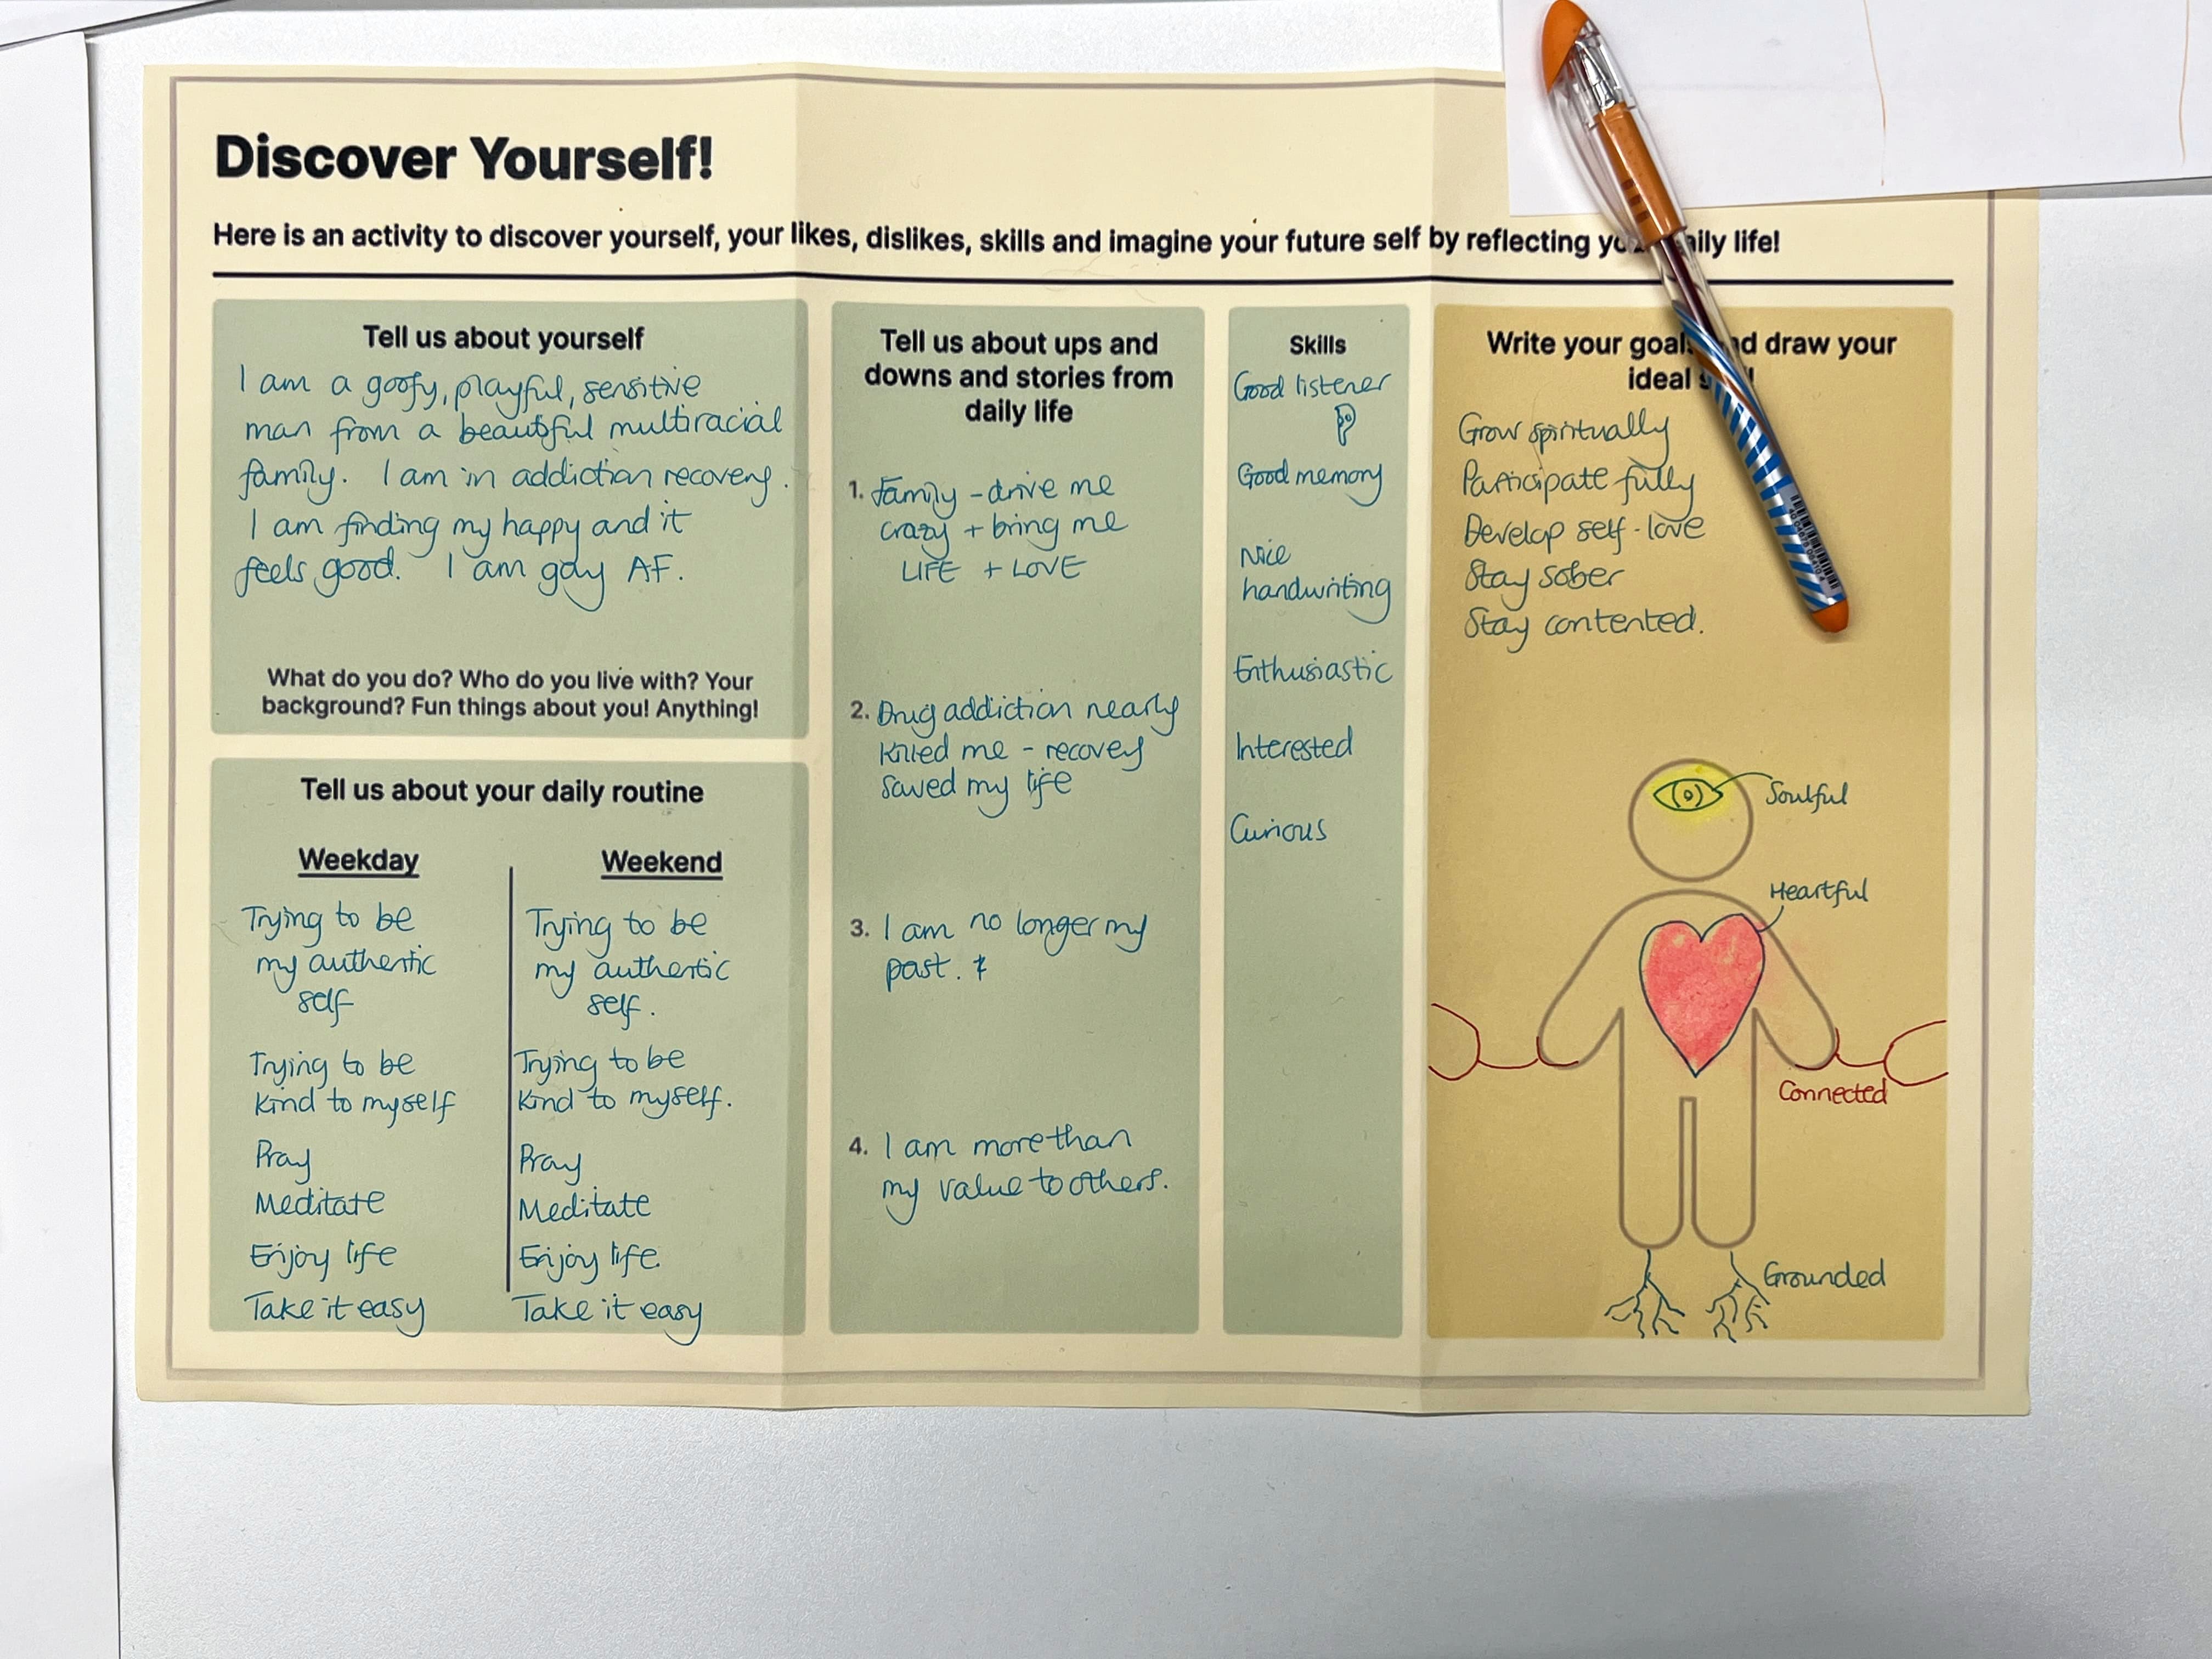 Discover Yourself!
Here is an activity to discover yourself, your likes, dislikes, skills and imagine your future self by reflecting daily life!
Tell us about yourself
I am a goofy, playful, sensitive
man from a beautiful multiracial
family. I am in addiction recovery.
I am finding my happy and it
feels good. I am gay AF.
What do you do? Who do you live with? Your
background? Fun things about you! Anything!
Tell us about your daily routine
Weekday
Trying to be
my authentic
self
Trying to be
kind to myself
Pray
Meditate
Enjoy life
Take it easy
Weekend
Trying to be
my authentic
self.
Trying to be
kind to myself.
Pray
Meditate
Enjoy life.
Take it easy
Tell us about ups and
downs and stories from
daily life
1. Family - drive me
crazy + bring me
LIFE + LOVE
2. Drug addiction nearly
killed me - recovey
saved my life
3. I am no longer my
past.
4. I am more than
my value to others.
Skills
Good listener
Good memory
Nice
handwriting
Enthusiastic
Interested
Curious
Write your goals and draw your
ideal
Grow spiritually
Participate fully
Develop self-love
Stay sober
Stay contented.
Soulful
Heartful
Connected
Grounded